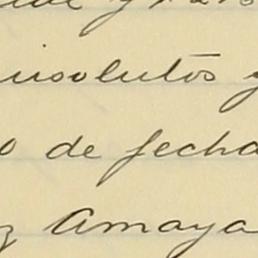 insolutos y
o de fecha
z Amaya